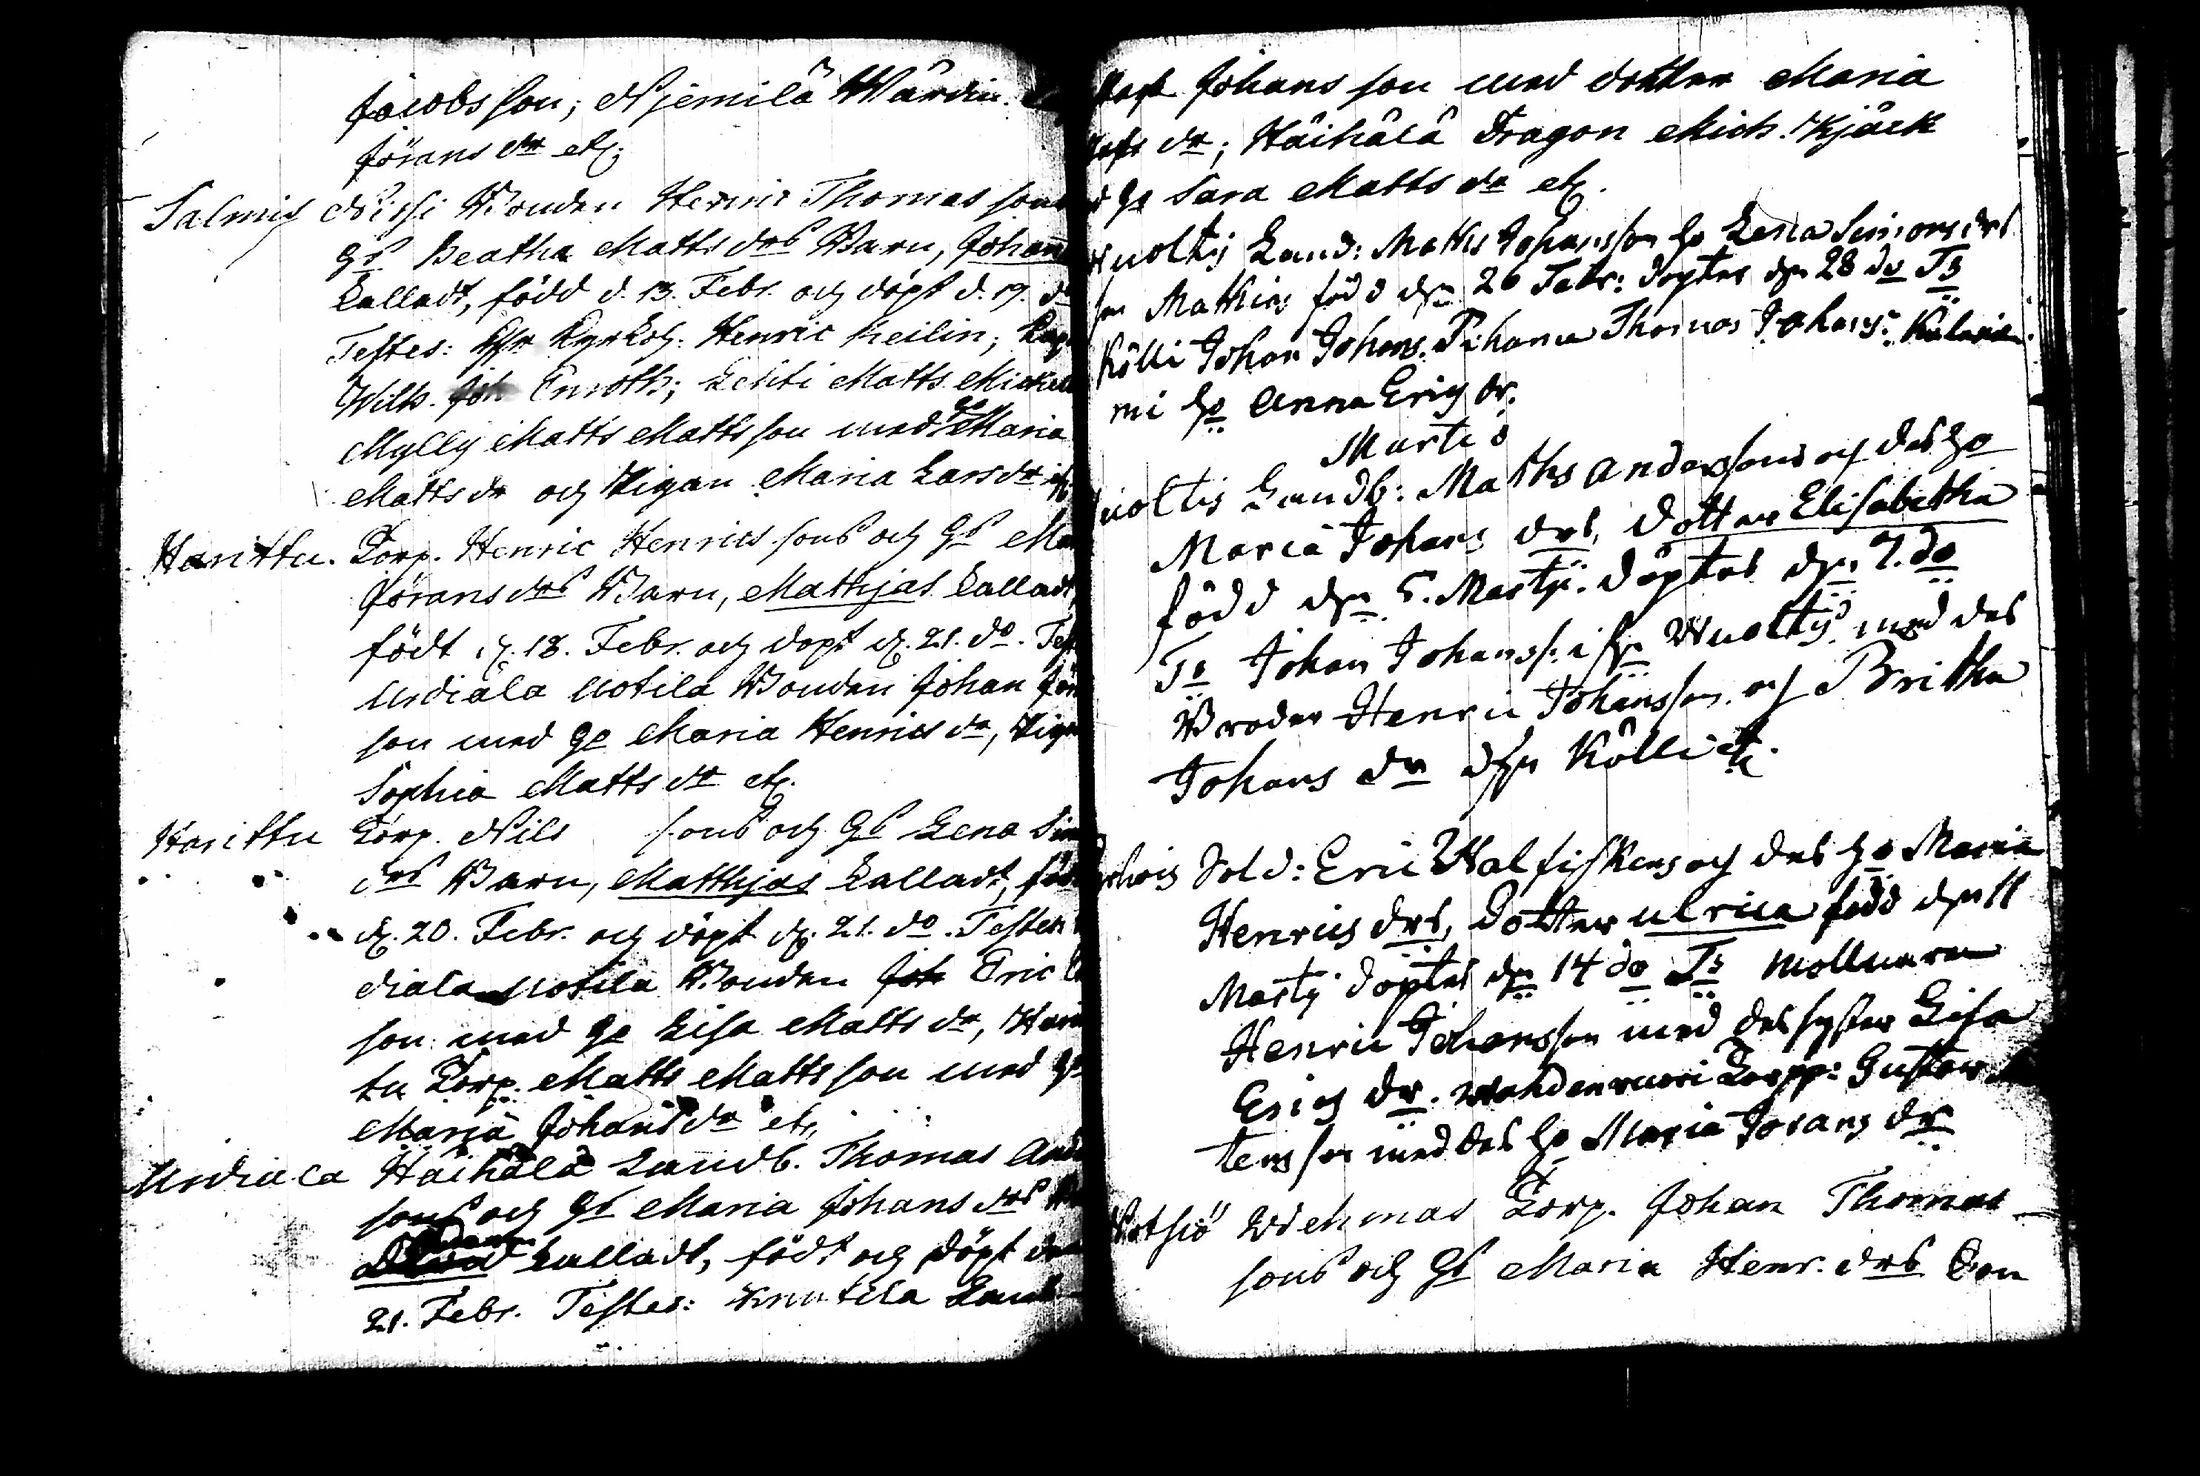 Jacobsson; Njemilä Wärdin.
Jörans dr etc.
Salmis Nissi Bonden Henric Thomas sons
Hs Beatha Matts drs Barn, Johan
kalladt, född d. 13. Febr. och döpt d. 19. do
Testes: Hr Kyrkoh. Henric Heilin;
Wilh. Joh Enroth; Lehti Matts Mickels
Mylly Matts Mattsson med Ho Maria
Matts dr och Pigan Maria Larsdr
Harittu. Torp. Henric Henrics sons och Hs
Jörans drs Barn, Mathjas kalladt,
födt d. 18. Febr. och döpt d. 21. do. Test
Urdiala Notila Bonden Johan Jör
son med Ho Maria Henrics dr, Pigan
Sophia Matts dr etc.
Harittu Torp. Nils sons och Hs Lena Sim
drs Barn, Matthjas kalladt, född
d. 20. Febr. och döpt d. 21. do. Testes
diala Notila Bonden Joh Eric
son med Ho Lisa Matts dr, Harit
tu Torp. Matts Mattsson med Ho
Maria Johans dr etc.
Urdiala Häihälä Landb. Thomas And
sons och Hs Maria Johans drs
kalladt, födt och döpt den
21. Febr. Testes: Knutila Land
Johansson med dotter Maria
dr; Häihälä Dragon Mich. Kjäck
Ho Sara Matts dr etc.
Wuoltis Land: Maths Johansson Ho Lena Simons drs
son Mathias född den 26 Febr: döptes den 28 do Ts
Kölli Johan Johans. Thomas Johans:
mi Ho Anna Erics dr.
Marti
Wuoltis Landb: Maths Andersons och des Ho
Maria Johans drs, dotter Elisabetha
född den 5. Martji. döptes den 7. do
Ts Johan Johanss: ifrn Wuoltis med des
Broder Henric Johansson och Britha
Johans dr ifrn Kölli etc.
Sold: Eric Walfiskens och des Ho Maria
Henrics drs, dotter Ulrica född den 11
Martij döptes den 14 do Ts Mollnaren
Henric Johansson med des syster Lisa
Erics dr. Torpp: Gustaw
tensson med des Ho Maria Jorans dr
Wehmas Torp. Johan Thomas
sons och Hs Maria Henr. drs Son